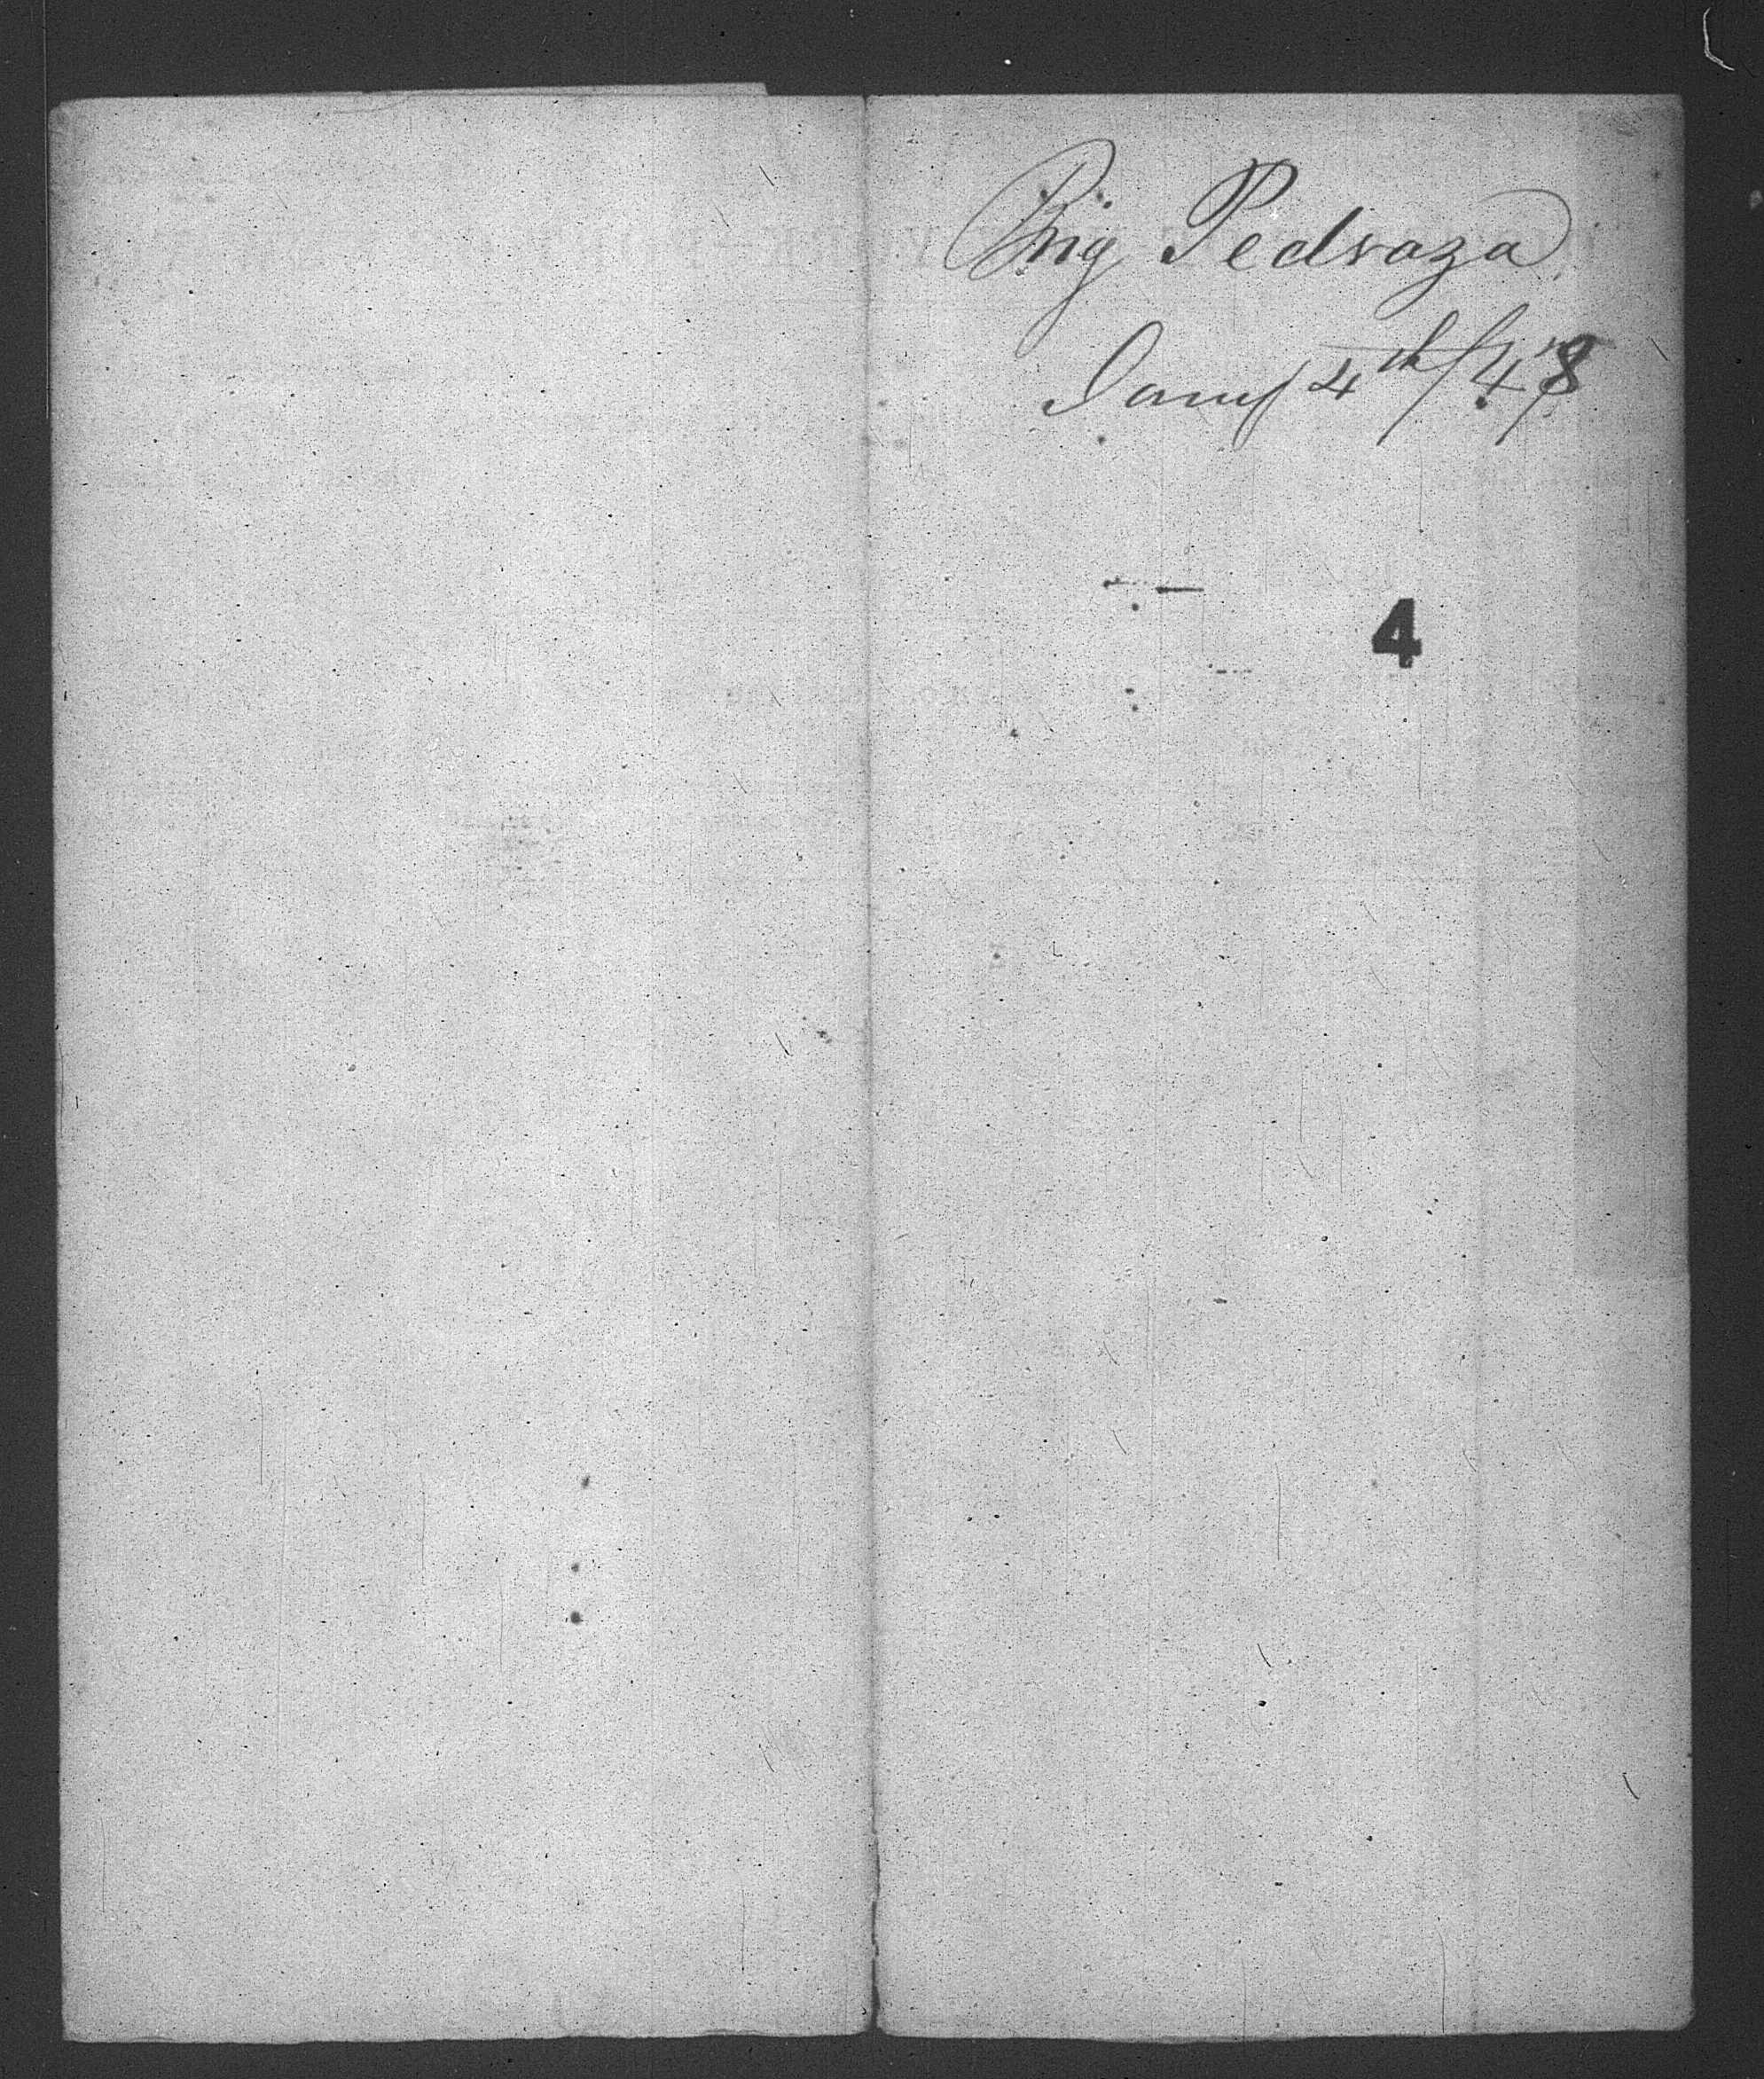 Brig Pedraza
Jany 4th/48
4